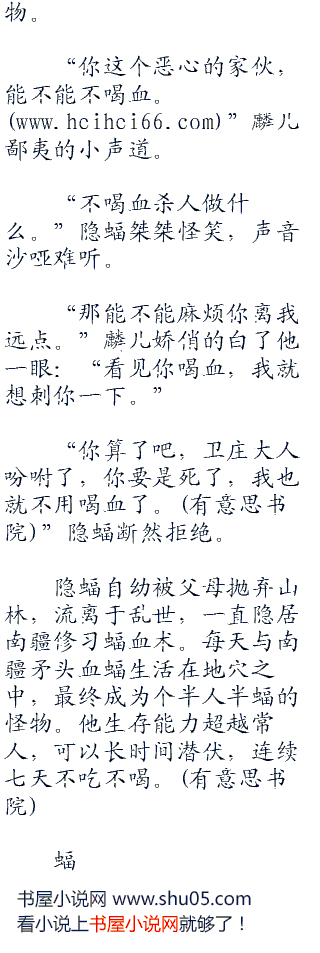 物。
“你这个恶心的家伙，
能不能不喝血。
(www.hcihci66.com)”麟儿
鄙夷的小声道。
“不喝血杀人做什
么。”隐蝠桀桀怪笑，声音
沙哑难听。
“那能不能麻烦你离我
远点。”麟儿娇俏的白了他
一眼：“看见你喝血，我就
想刺你一下。”
“你算了吧，卫庄大人
吩咐了，你要是死了，我也
就不用喝血了。(有意思书
院)”隐蝠断然拒绝。
隐蝠自幼被父母抛弃山
林，流离于乱世，一直隐居
南疆修习蝠血术。每天与南
疆矛头血蝠生活在地穴之
中，最终成为个半人半蝠的
怪物。他生存能力超越常
人，可以长时间潜伏，连续
七天不吃不喝。(有意思书
院)
蝠
书屋小说网 www.shu05.com
看小说上书屋小说网就够了！